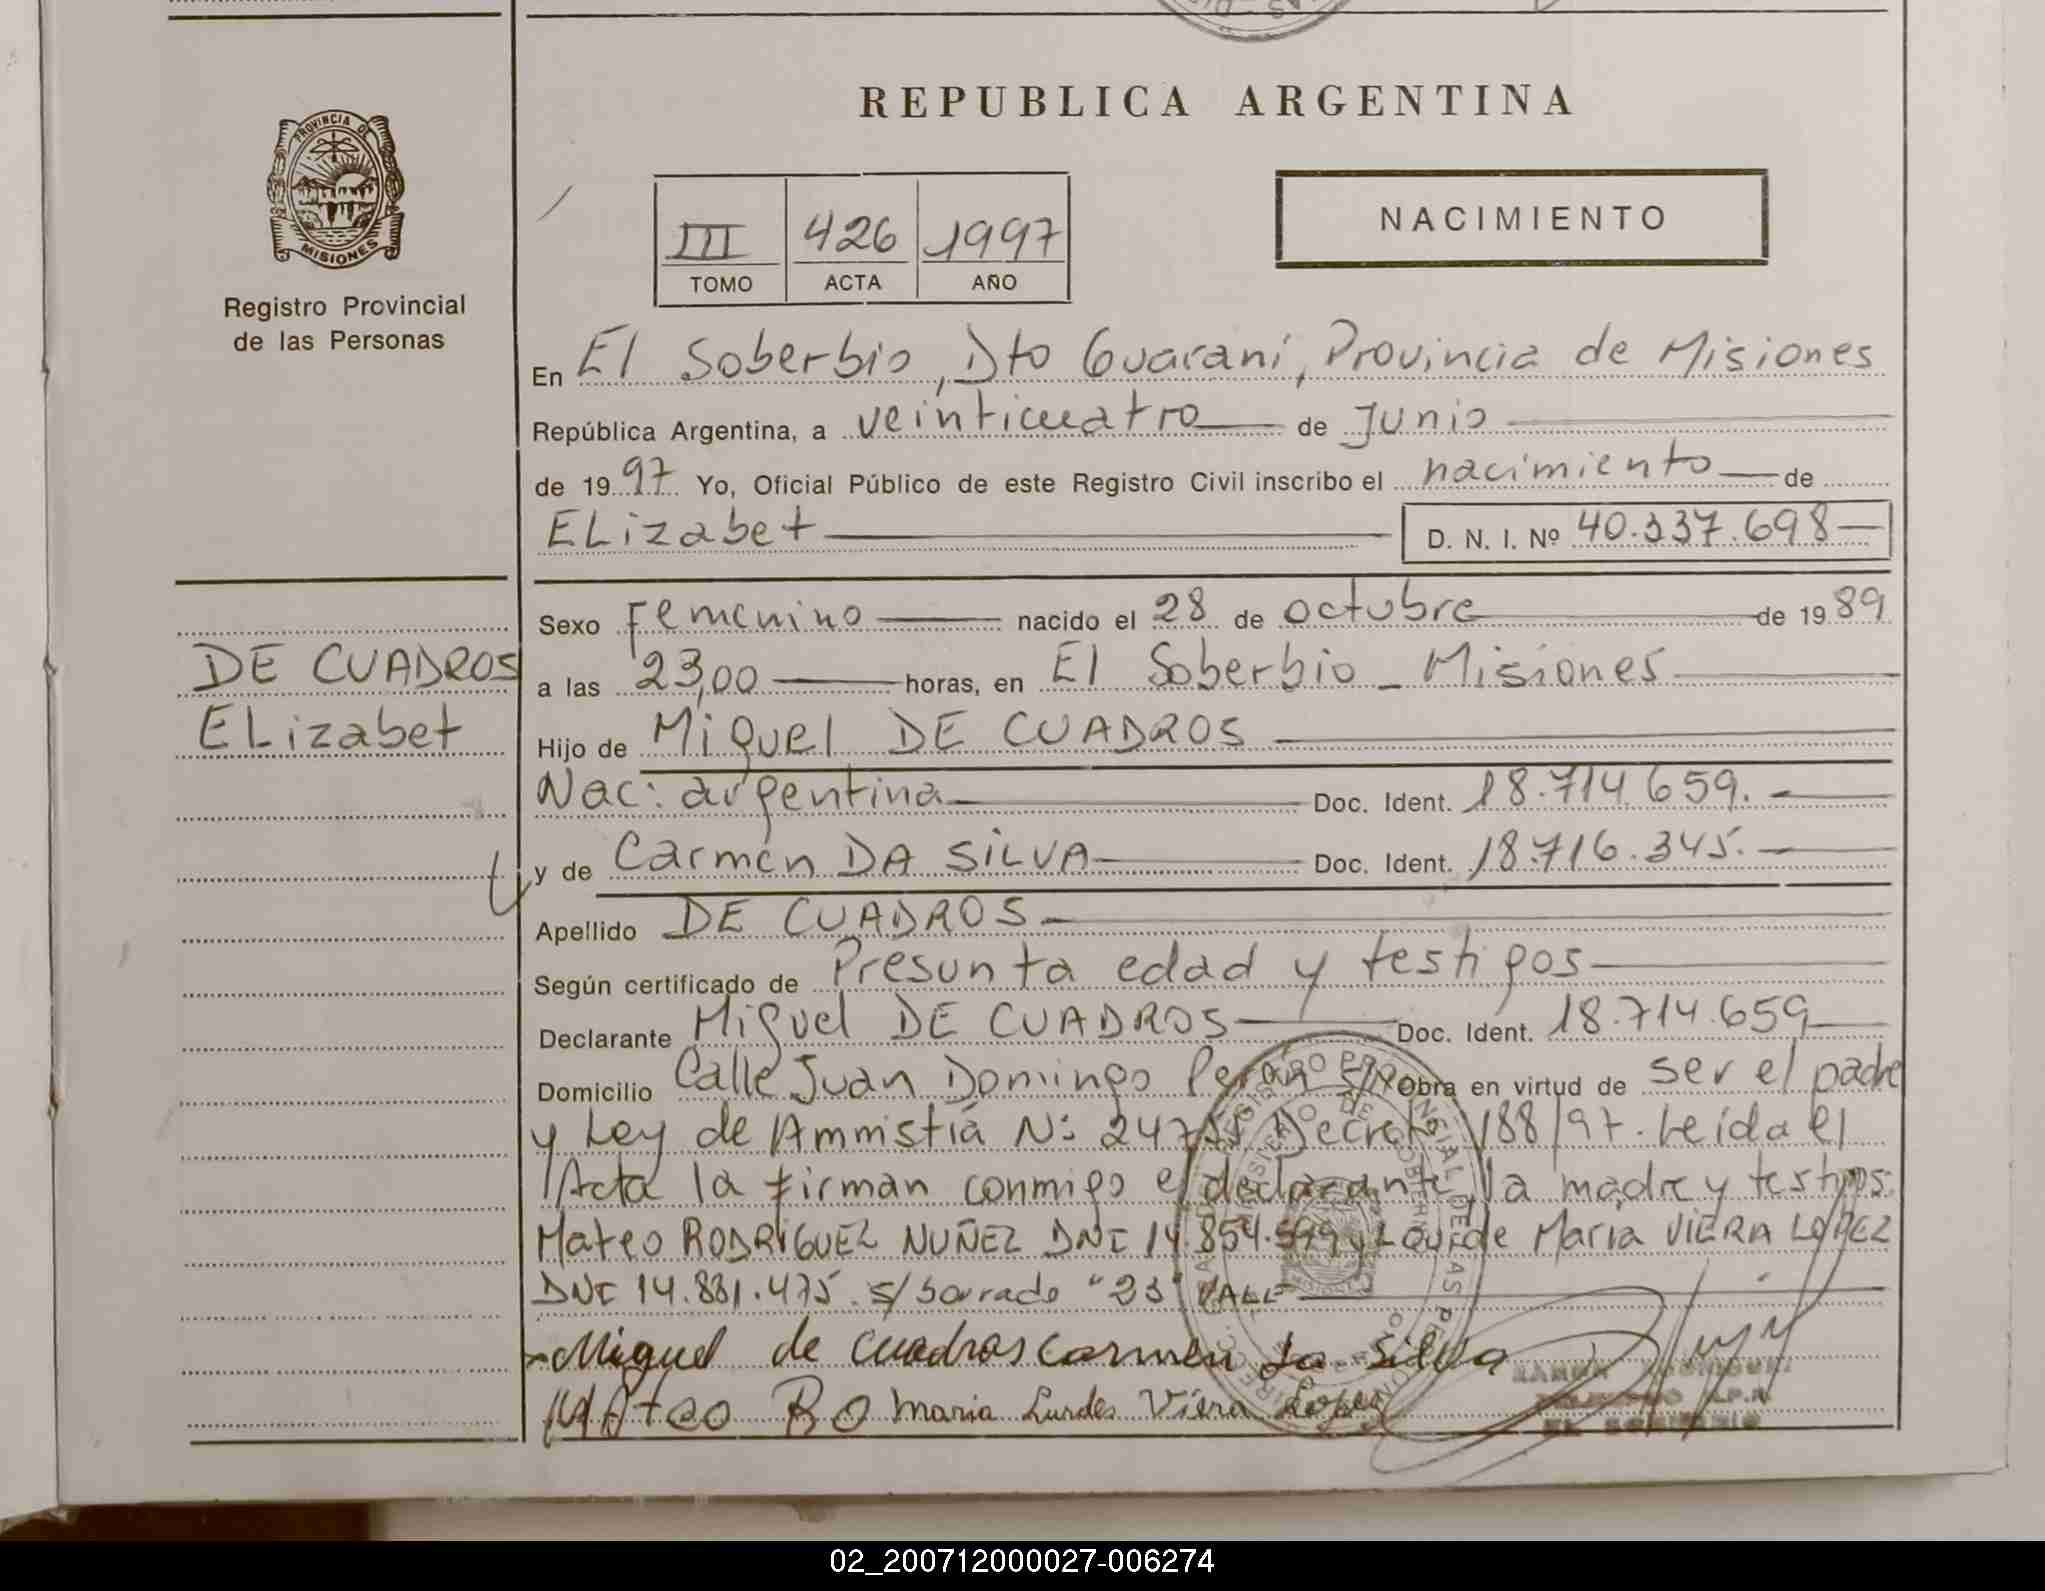 REPUBLICA ARGENTINA
PROVINCIA DE
MISIONES
Registro Provincial
de las Personas
NACIMIENTO
III 426 1997
TOMO ACTA AÑO
En El Soberbio, Dto Guaraní, Provincia de Misiones
República Argentina, a veinticuatro de Junio
de 1997 Yo, Oficial Público de este Registro Civil inscribo el nacimiento de
ELizabet D. N. I. Nº 40.337.698
Sexo Femenino nacido el 28 de octubre de 1989
DE CUADROS
ELizabet
a las 23,00 horas, en El Soberbio - Misiones
Hijo de Miguel DE CUADROS
Nac: argentina Doc. Ident. 18.714.659.
y de Carmen DA SILVA Doc. Ident. 18.716.345.
Apellido DE CUADROS
Según certificado de Presunta edad y testigos
Declarante Miguel DE CUADROS Doc. Ident. 18.714.659
Domicilio Calle Juan Domingo Perón S/N Obra en virtud de ser el padre
y Ley de Amnistía Nº 24755 Decreto 188/97. Leída el
Acta la firman conmigo el declarante, la madre y testigos:
Mateo RODRIGUEZ NUÑEZ DNI 14.854.599 y Lourde Maria VIERA LOPEZ
DNI 14.831.475. s/borrado "23" VALE
Miguel de cuadros carmen da silva
MAteo RO maria Lurdes Viera Lopez
EL SOBERBIO
02_200712000027-006274